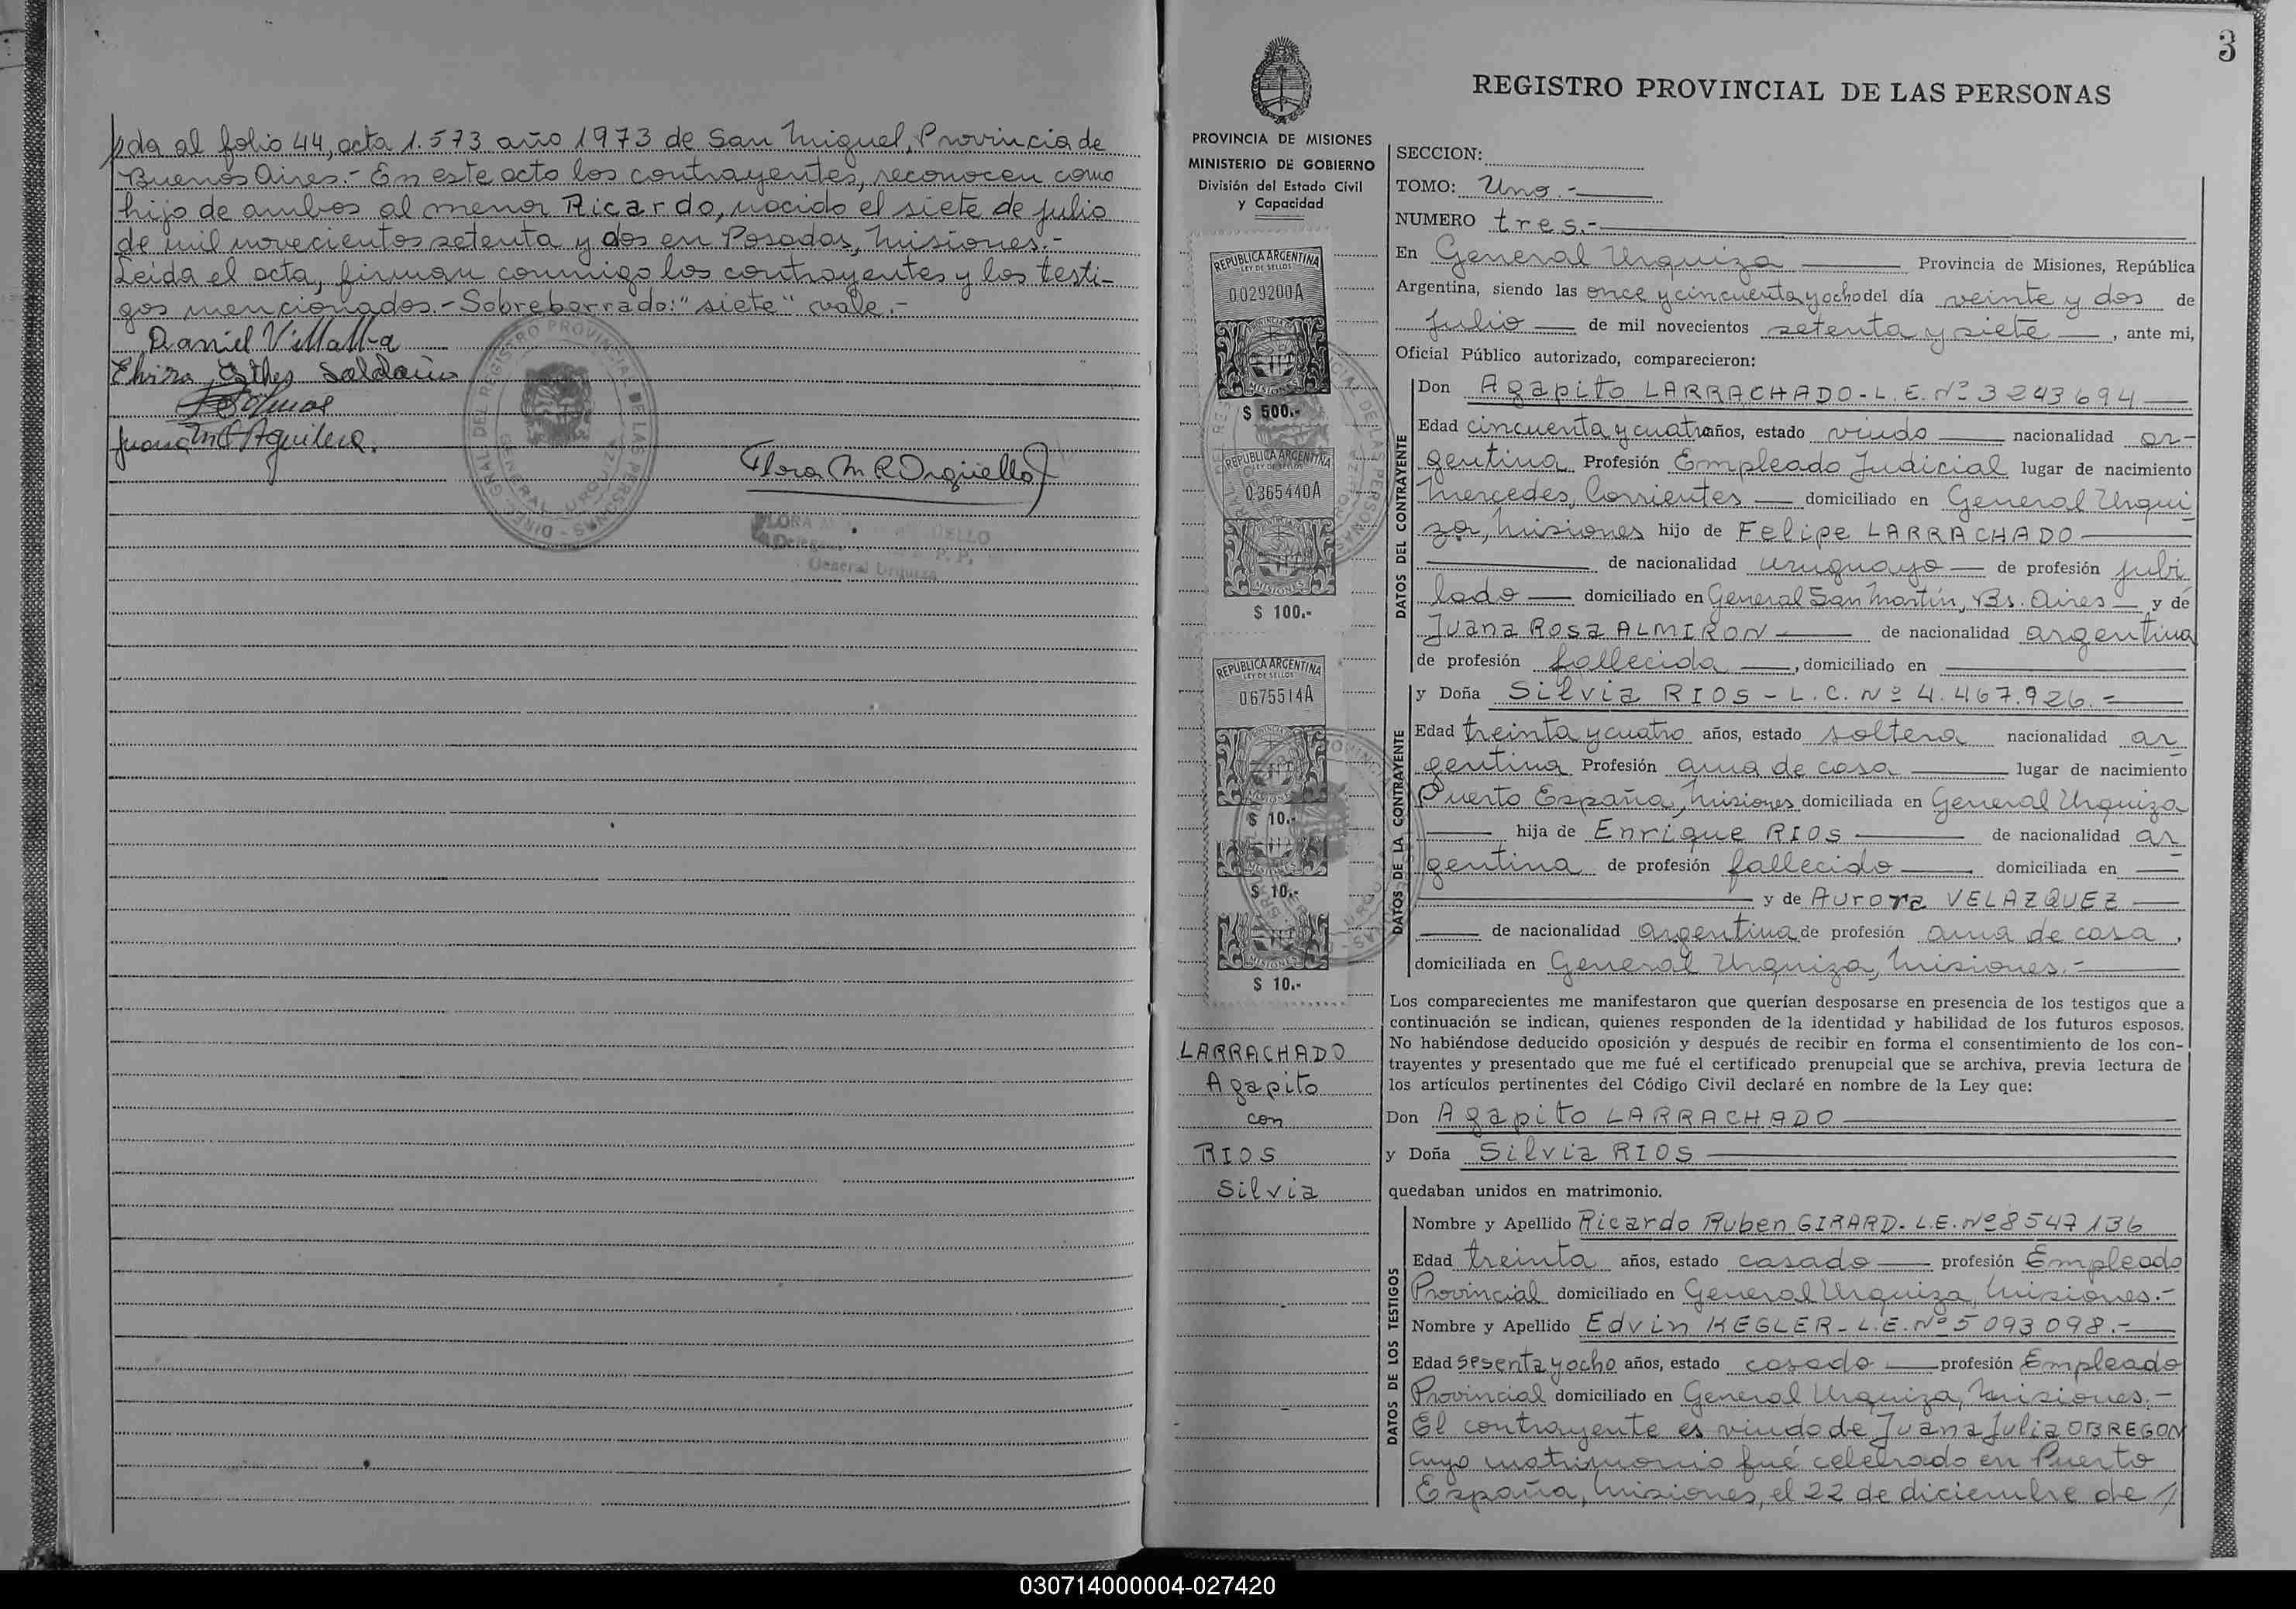 pda al folio 44, acta 1.573 año 1973 de San Miguel, Provincia de
Buenos Aires.- En este acto los contrayentes, reconocen como
hijo de ambos al menor Ricardo, nacido el siete de julio
de mil novecientos setenta y dos en Posadas, Misiones.-
Leida el acta, firman conmigo los contrayentes y los testi-
gos mencionados.- Sobreborrado: "siete" vale.-
Daniel Villalba
Elvira Esther Saldaña
Juana M Aguilera.
Flora M R Orgüello
General Urquiza
3
REGISTRO PROVINCIAL DE LAS PERSONAS
PROVINCIA DE MISIONES
MINISTERIO DE GOBIERNO
División del Estado Civil
y Capacidad
REPUBLICA ARGENTINA
LEY DE SELLOS
0029200A
MISIONES
$ 500.-
REPUBLICA ARGENTINA
LEY DE SELLOS
0365440A
MISIONES
$ 100.-
REPUBLICA ARGENTINA
LEY DE SELLOS
0675514A
$ 10.-
$ 10.-
MISIONES
$ 10.-
LARRACHADO
Agapito
con
RIOS
Silvia
SECCION:
TOMO: Uno.-
NUMERO tres.-
En General Urquiza Provincia de Misiones, República
Argentina, siendo las once y cincuenta y ocho del día veinte y dos de
Julio de mil novecientos setenta y siete, ante mi,
Oficial Público autorizado, comparecieron:
DATOS DEL CONTRAYENTE
Don Agapito LARRACHADO - L.E. Nº 3243694
Edad cincuenta y cuatro años, estado viudo nacionalidad ar-
gentina Profesión Empleado Judicial lugar de nacimiento
Mercedes, Corrientes domiciliado en General Urqui
za, Misiones hijo de Felipe LARRACHADO
de nacionalidad uruguayo de profesión jubi
lado domiciliado en General San Martín, Bs. Aires y de
Juana Rosa ALMIRON de nacionalidad argentina
de profesión fallecida, domiciliado en
DATOS DE LA CONTRAYENTE
y Doña Silvia RIOS - L.C. Nº 4.467.926.-
Edad treinta y cuatro años, estado soltera nacionalidad ar
gentina Profesión ama de casa lugar de nacimiento
Puerto España, Misiones domiciliada en General Urquiza
hija de Enrique RIOS de nacionalidad ar
gentina de profesión fallecido domiciliada en
y de Aurora VELAZQUEZ
de nacionalidad argentina de profesión ama de casa,
domiciliada en General Urquiza, Misiones.-
Los comparecientes me manifestaron que querían desposarse en presencia de los testigos que a
continuación se indican, quienes responden de la identidad y habilidad de los futuros esposos.
No habiéndose deducido oposición y después de recibir en forma el consentimiento de los con-
trayentes y presentado que me fué el certificado prenupcial que se archiva, previa lectura de
los artículos pertinentes del Código Civil declaré en nombre de la Ley que:
Don Agapito LARRACHADO
y Doña Silvia RIOS
quedaban unidos en matrimonio.
DATOS DE LOS TESTIGOS
Nombre y Apellido Ricardo Ruben GIRARD - L.E. Nº 8547136
Edad treinta años, estado casado profesión Empleado
Provincial domiciliado en General Urquiza, Misiones.-
Nombre y Apellido Edvin KEGLER - L.E. Nº 5093098.-
Edad sesenta y ocho años, estado casado profesión Empleado
Provincial domiciliado en General Urquiza, Misiones.-
El contrayente es viudo de Juana Julia OBREGON
cuyo matrimonio fué celebrado en Puerto
España, Misiones, el 22 de diciembre de 1
030714000004-027420